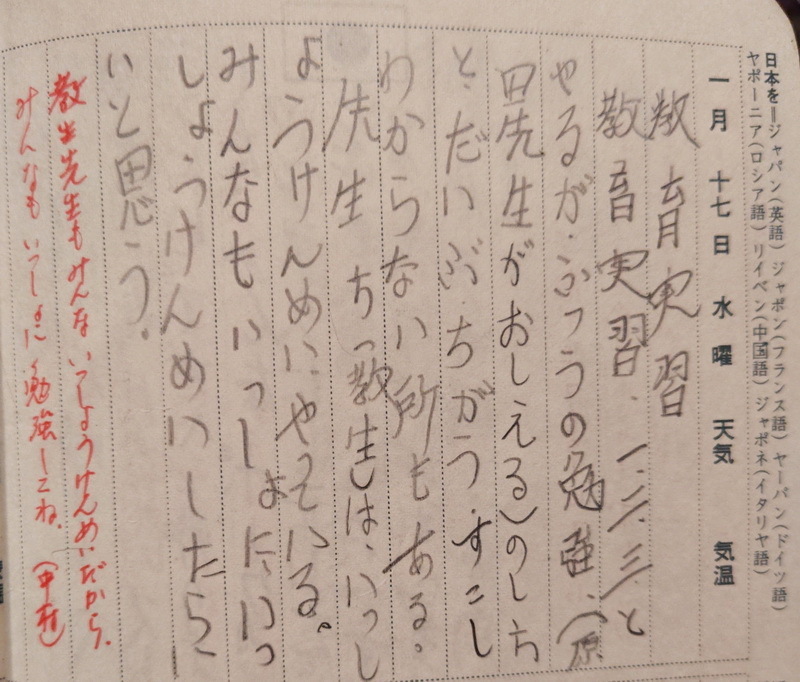 日本を=ジャパン(英語) ジャポン(フランス語) ヤーパン(ドイツ語)
ヤポーニア(ロシア語) リイベン(中国語) ジャポネ(イタリヤ語)
一月 十七日 水曜 天気 気温
教育実習
教育実習、一、二、三、と
やるが、ふつうの勉強、(原
田先生がおしえる)のしち
と、だいぶ、ちがう、すこし
わからない所もある。
先生ち(教生)は、いっし
ょうけんめいにやっている。
みんなもいっしょに、いっ
しょうけんめいしたらい
いと思う。
教生先生もみんないっしょうけんめいだから、
みんなもいっしょに勉強してね。(中村)